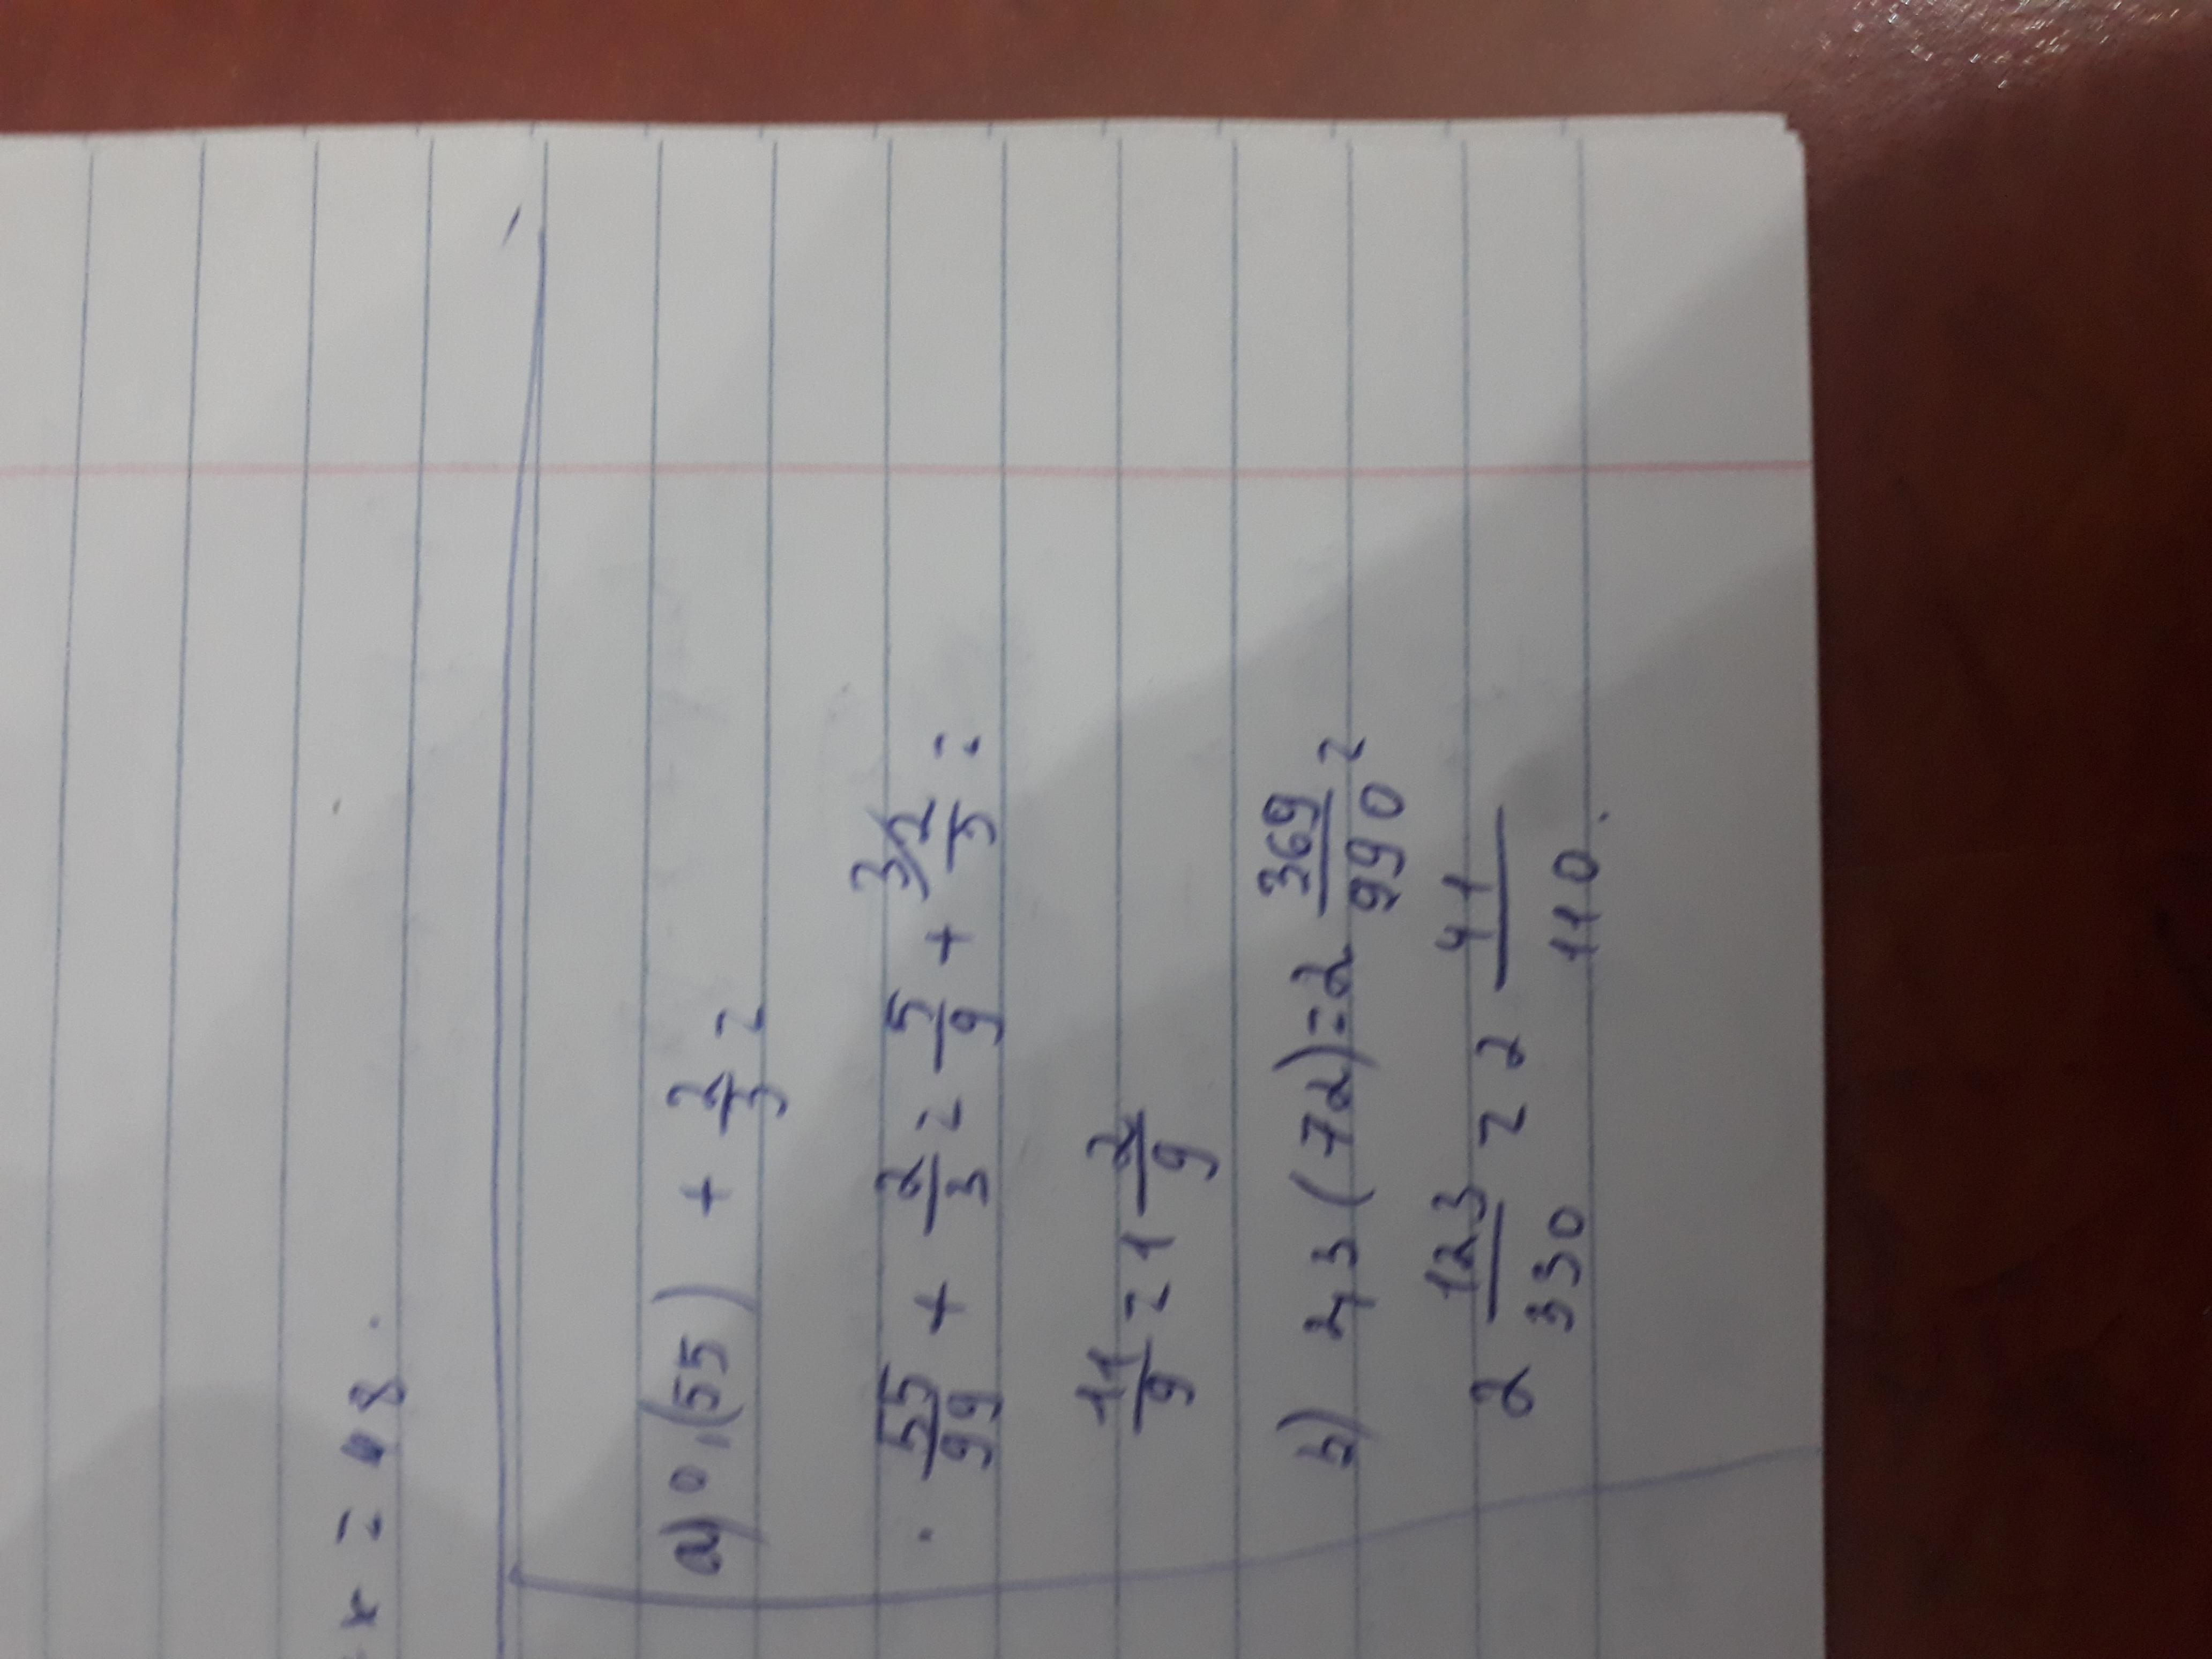 x = 48.
a) 0,(55) + 2/3 =
55/99 + 2/3 = 5/9 + 3/ 2/3 =
11/9 = 1 2/9
b) 2,3(72) = 2 369/990 =
2 123/330 = 2 41/110.